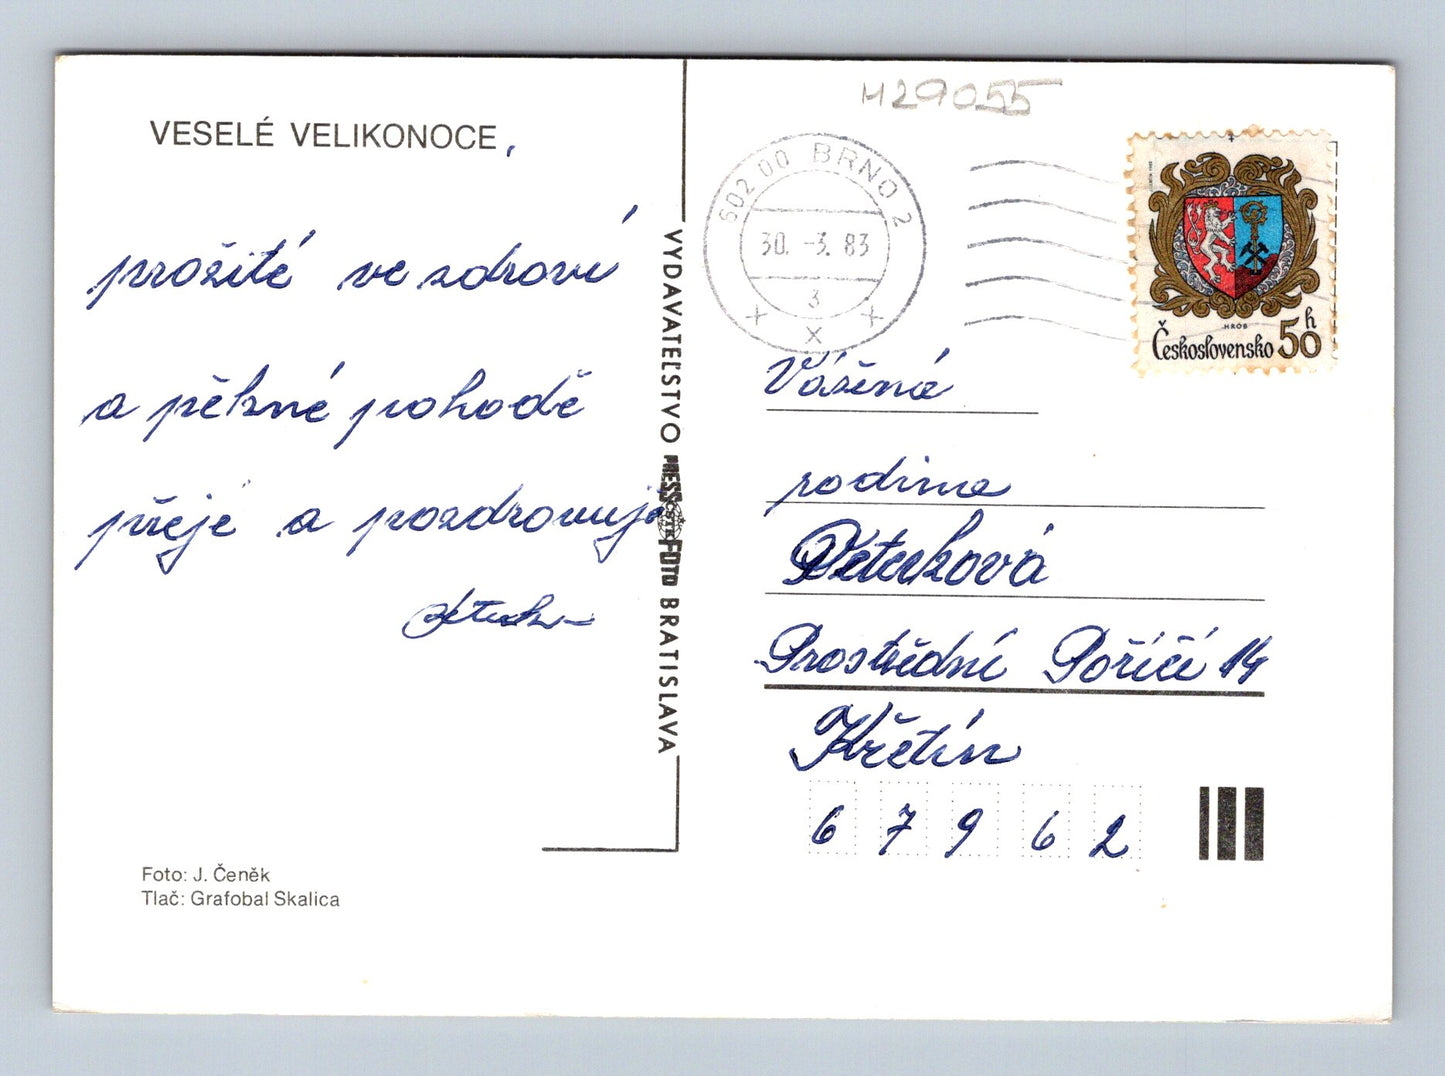 VESELÉ VELIKONOCE,
prožité ve zdraví
a pěkné pohodě
přeje a pozdravuje
Foto: J. Čeněk
Tlač: Grafobal Skalica
VYDAVATEĽSTVO PRESSFOTO BRATISLAVA
H29055
602 00 BRNO 2
30. -3. 83
3
x x x
HROB
Československo 50 h
Vážená
rodina
Peterková
Prostřední Poříčí 14
Křetín
6 7 9 6 2